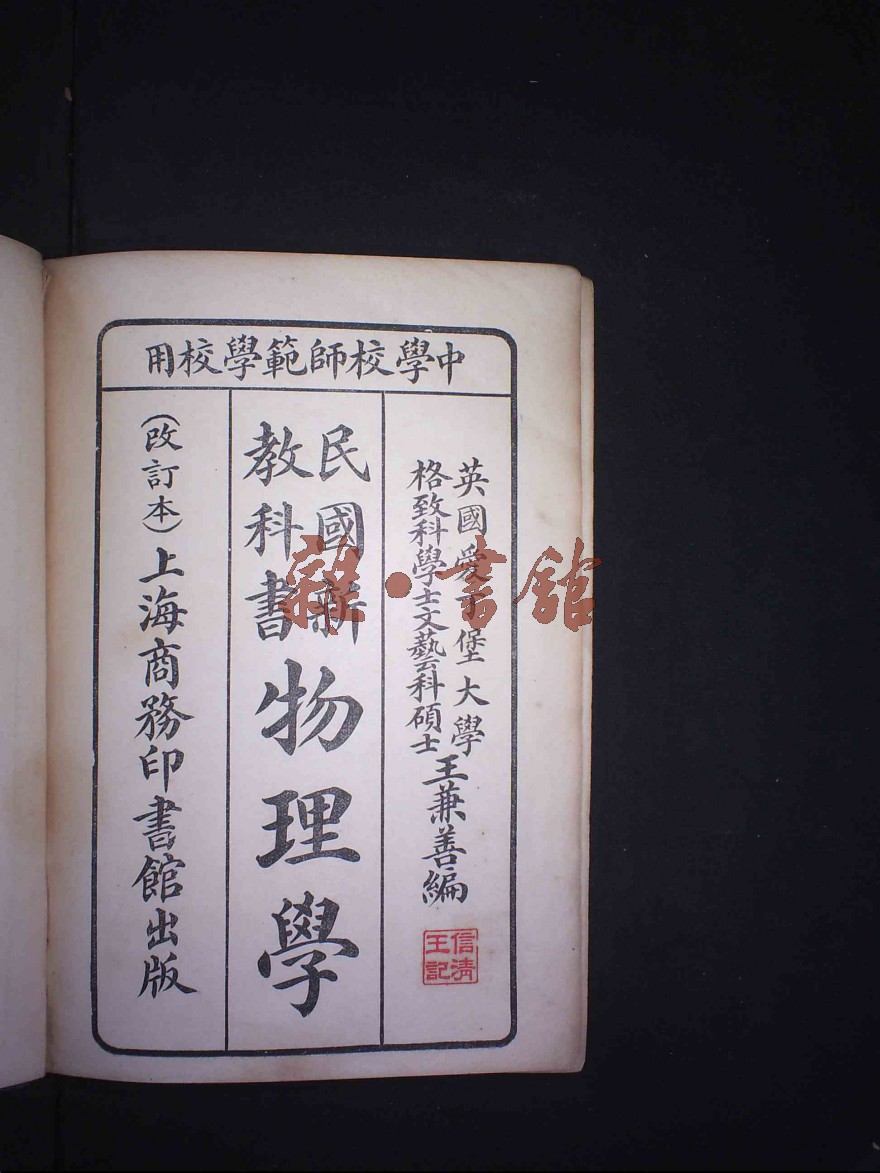 中學校師範學校用
英國愛丁堡大學
格致科學士文藝科碩士
王兼善編
民國新
教科書
物理學
(改訂本)上海商務印書館出版
信清
王記
雜·書館